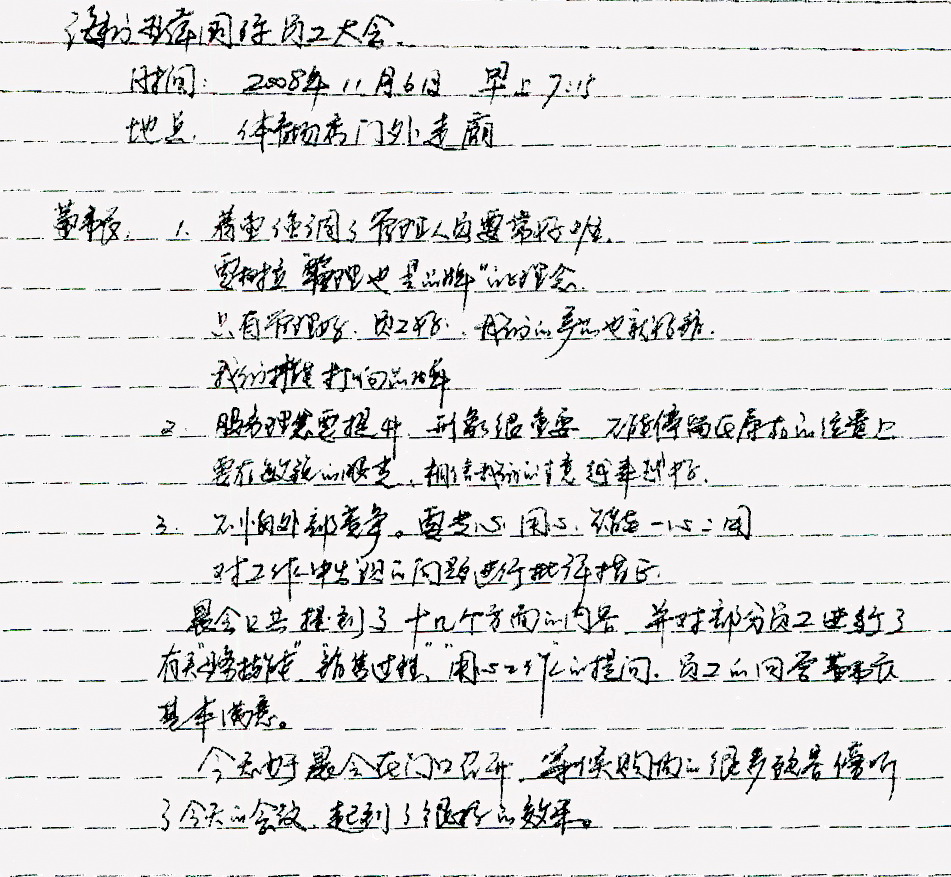 国际员工大会
时间: 2008年11月6日 早上7:15
地点 体育场 门外走廊
董事长: 1. 着重强调了管理人员要带好
要树立 管理也是品牌"的理念
只有管理好、员工好、我们的产品也就好
我们 打响品牌
2. 服务理念要提升, 形象很重要 不能停留在原有的位置上
要有 的 , 相信我们的生意越来越好.
3. 不怕外部竞争。要专心 用心、不能一心二用
对工作中出现的问题进行批评指正
晨会上共提到了十几个方面的内容 并对部分员工进行了
有关" " "销售过程" "用心工作"的提问. 员工的回答董事长
基本满意。
今天由于晨会在门口召开, 等候购物的很多顾客傍听
了今天的会议、起到了很好的效果。